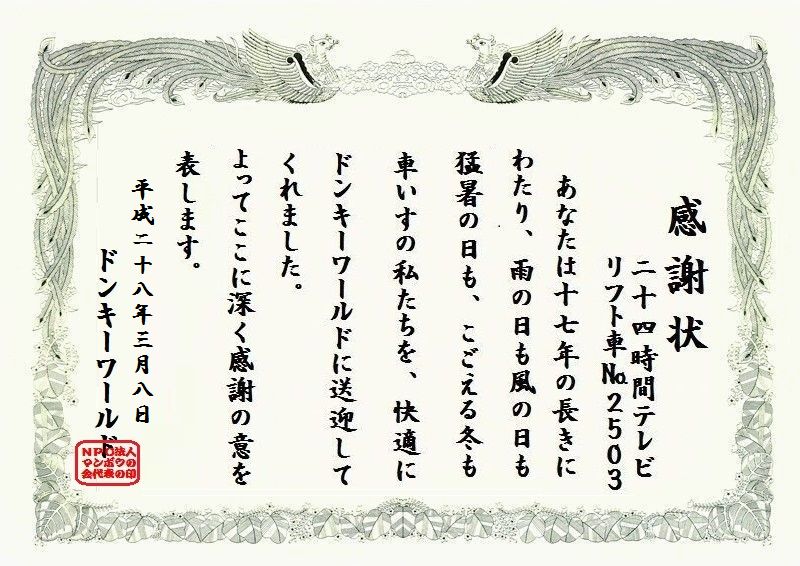 感謝状
二十四時間テレビ
リフト車№2503
あなたは十七年の長きに
わたり、雨の日も風の日も
猛暑の日も、こごえる冬も
車いすの私たちを、快適に
ドンキーワールドに送迎して
くれました。
よってここに深く感謝の意を
表します。
平成二十八年三月八日
ドンキーワールド
NPO法人
マンボウの
会代表の印